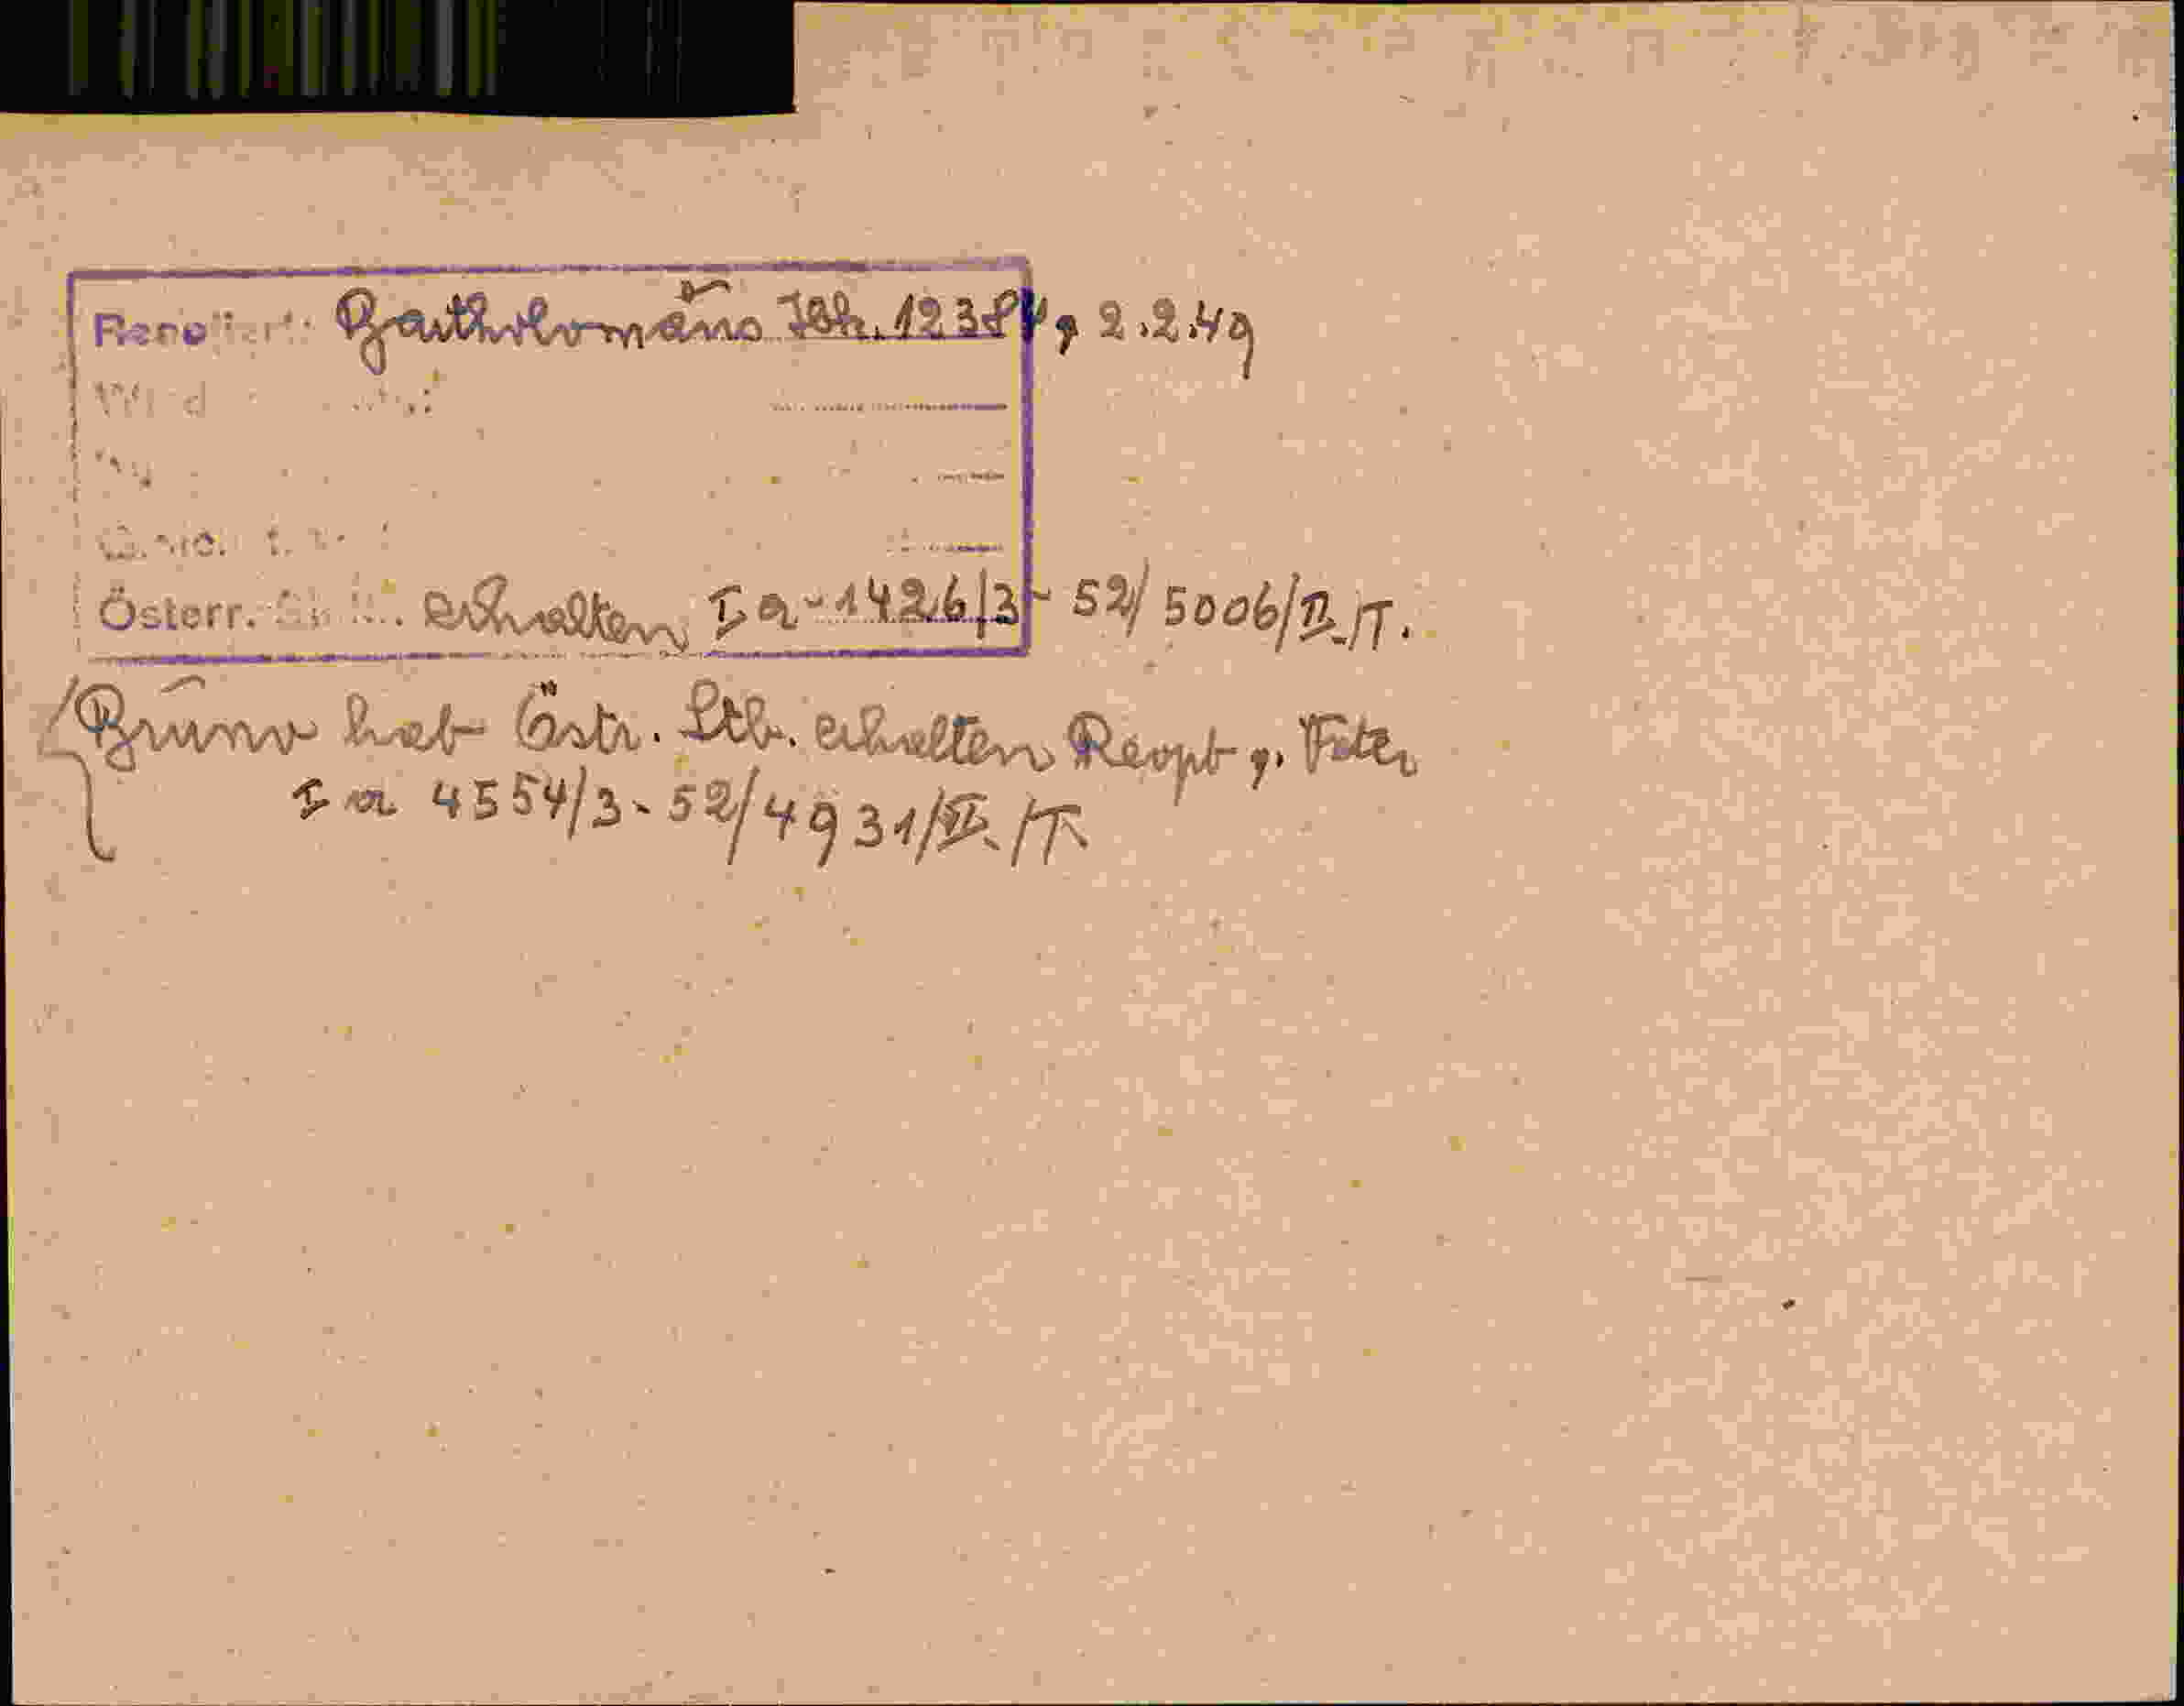 Reoptiert: Bartholomäus Joh. 12384, 2.2.49
Wird
Österr. erhalten Ia-1426/3-52/5006/II/T.
Bruno hat Östr. Stb. erhalten Reopt g. Vater
Ia 4554/3-52/4931/II/T